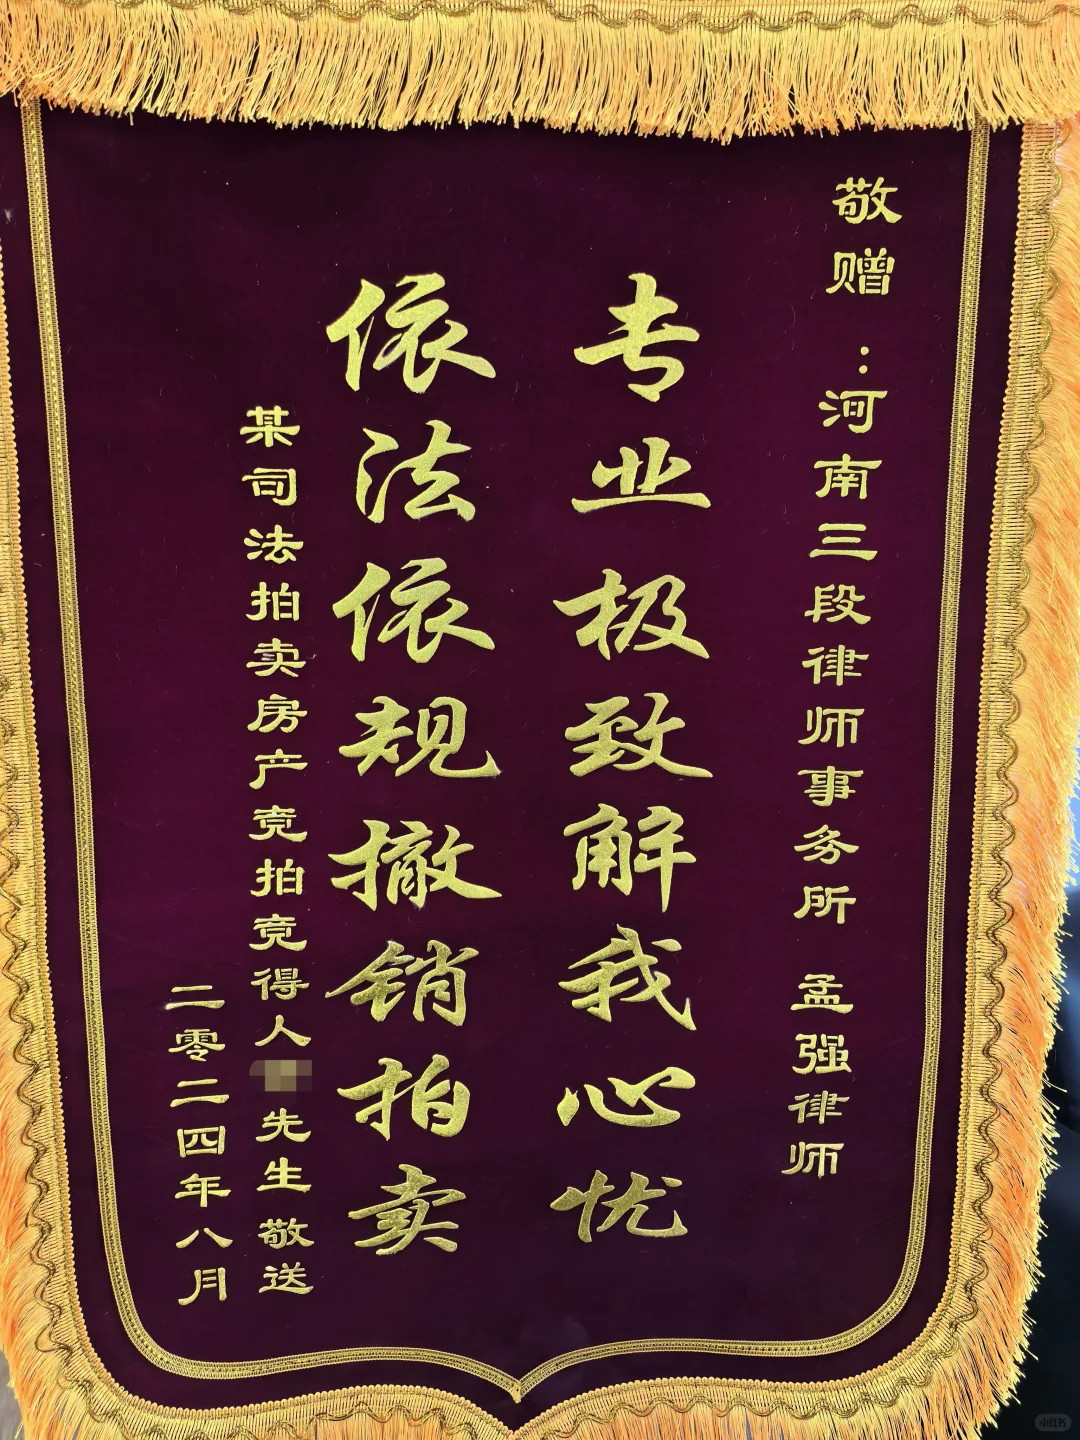 敬赠：河南三段律师事务所 孟强律师
专业极致解我心忧
依法依规撤销拍卖
某司法拍卖房产竞拍竞得人 先生敬送
二零二四年八月
小红书